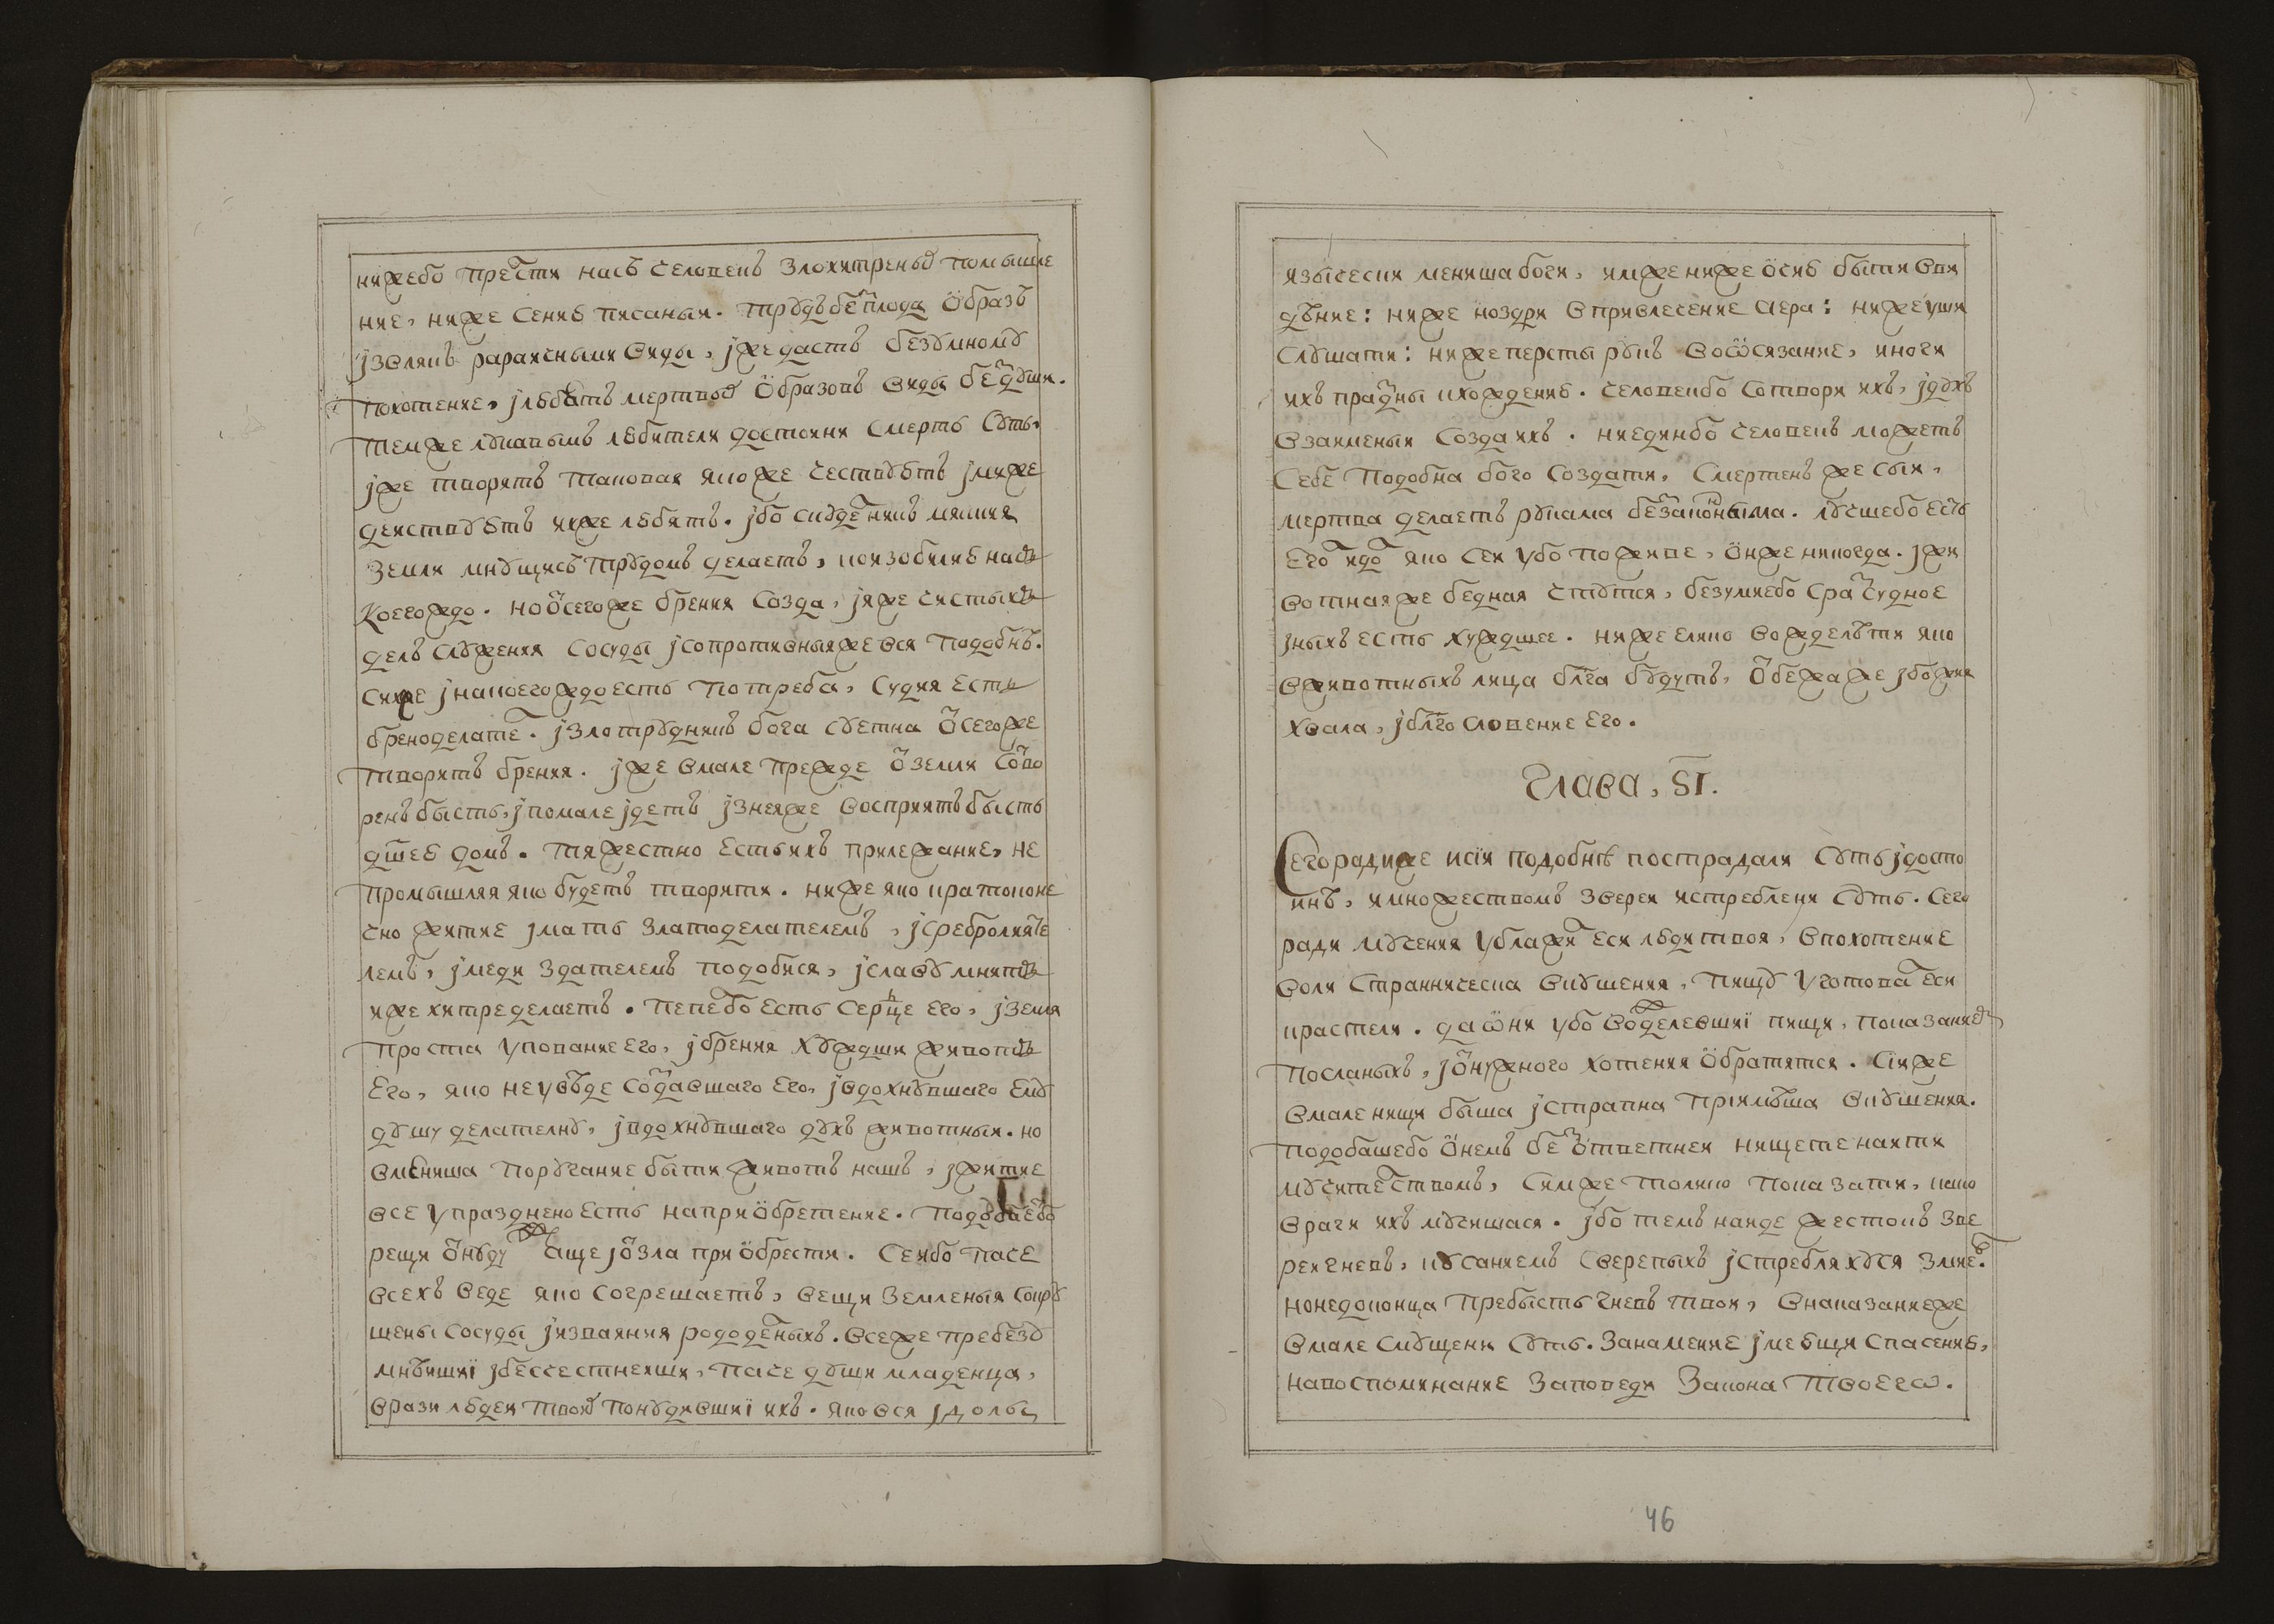 нижебо прелсти насъ человекъ злохитреныѡ помышле
ние, ниже сению писаныи. трудъ беплода ѿбразъ
ізваянъ различными виды, іже дастъ безумному
похотение, ілюбитъ мертвоѡ ѿбразовъ виды бедуши.
темже лукавымъ любители достоини смерть суть,
іже творятъ таковая якоже чествуютъ імиже
деиствуютъ ииже любятъ. ібо скуделникъ мякия
земли мнущись трудомъ делаетъ, коизобилию нашъ
коегождо. ноѿсегоже брения созда, іяже чистыхъ
делъ служения сосуды ісопротивныяже вся подобнъ.
сихже інакоегождо есть потреба, судия есть
бреноделате. ізлотрудникъ бога суетна ѿсегоже
творитъ брения. іже вмале прежде ѿземли сотво
ренъ бысть, іпомале ідетъ ізнеяже восприятъ бысть
дшею домъ. тяжестно есть ихъ прилежание, не
промышляя яко будетъ творити. ниже яко кратоконе
чно житие імать златоделателемъ, ісребролияте
лемъ, імеди здателемъ подобися, іславу мнитъ
иже хитре делаетъ. пепебо есть сердце его, іземля
проста упование его, ібрения хуждши животъ
его, яко неувѣде создавшаго его, івдохнувшаго ему
душу делателну, івдохнувшаго духъ животныи. но
вмениша поругание быти животъ нашъ, іжитие
все упразднено есть наприѿбретение. подобаебо
рещи ѿнюду аще іѿзла приѿбрести. сеибо паче
всехъ веде яко согрешаетъ, вещи земленыя сокру
шены сосуды іизваяния рододеныхъ. всеже пребезу
мнѣишиї ібесчестнеиши, паче души младенца,
врази людеи твоиѡ понудившиї ихъ. яко вся ідолы
язычески мениша боги, имже ниже ѿчию быти вви
дѣние: ниже ноздри впривлечение аера: ниже уши
слушати: ниже персты рукъ воѡсязание, иноги
ихъ праздны ихождению. человекбо сотвори ихъ, ідухъ
взаименыи создаихъ. ниединбо человекъ можетъ
себе подобна бого создати, смертенъ же сыи,
мертва делаетъ рукама беззаконныма. лучшебо есть
его идо яко сеи убо поживе, ѿниже никогда. іжи
вотнаяже бедная чтутся, безумиебо сра чудное
іныхъ есть хуждшее. ниже елико вожделѣти яко
вживотныхъ лица блга будутъ, ѿбежаже ібожия
хвала, іблго словение его.
Глава, ЅІ.
Сегорадиже исїи подобнѣ пострадали суть ідосто
инъ, имножествомъ зверей истреблени суть. сего
ради мучения ублажи еси люди твоя, впохотение
воли странническа вкушения, пищу уготова еси
крастели. даѡни убо вожделевшиї пищи, показание
посланыхъ, іѿнужного хотения ѿбратятся. сїиже
вмале нищи быша істранна прїимѣша вкушения.
подобашебо ѿнемъ бе ѿтветнеи нищете наити
мучителством, симже толико показати, како
враги ихъ мучишася. ібо темъ наиде жестокъ зве
реи гневъ, икусаниемъ сверепыхъ істребляхуся змиев.
нонедоконца пребысть гневъ твои, внаказаниеже
вмале смущени суть. занамение імеющи спасению,
навоспоминание заповеди закона твоегѡ.
46